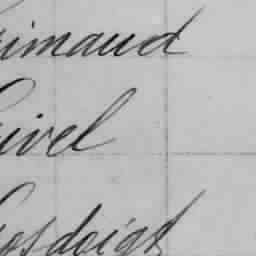 rimaud
rivel
rosdoigt